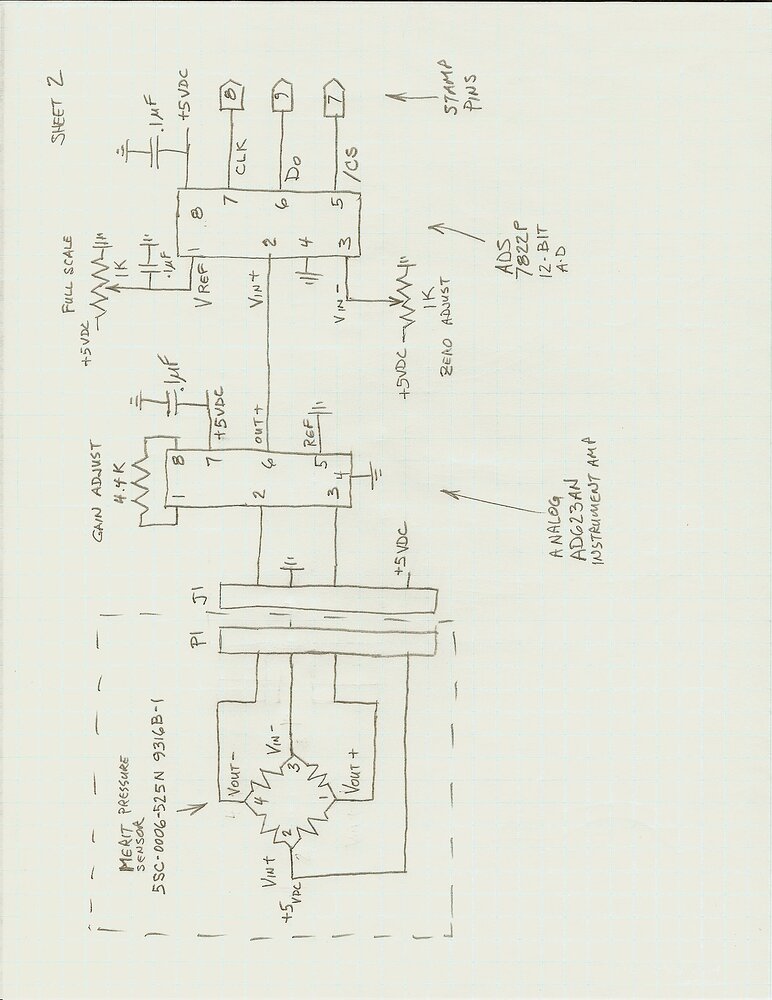 SHEET 2
MERIT PRESSURE
SENSOR
5SC-0006-525N 9316B-1
VOUT-
VIN-
4
3
2
1
VIN+
+5VDC
VOUT+
P1
J1
+5VDC
GAIN ADJUST
4.4K
.1µF
+5VDC
1
8
7
2
6
OUT+
3
5
REF
4
ANALOG
AD623AN
INSTRUMENT AMP
FULL SCALE
+5VDC
1K
.1µF
VREF
VIN+
VIN-
+5VDC
1K
ZERO ADJUST
.1µF
+5VDC
1
8
2
7
4
6
3
5
CLK
8
DO
9
/CS
7
ADS
7822P
12-BIT
A-D
STAMP
PINS